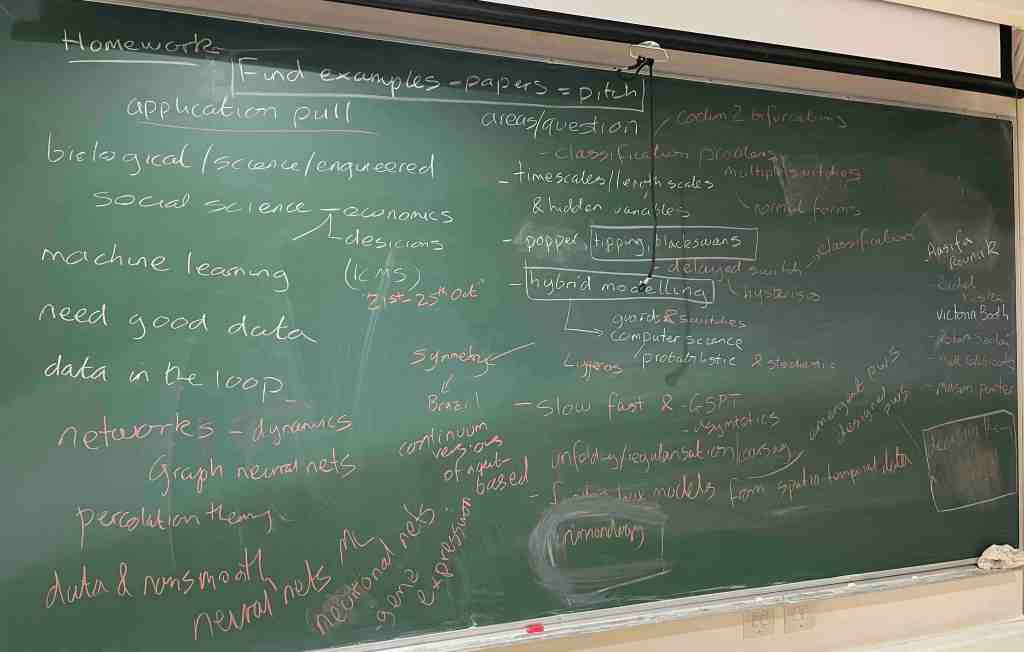 Homework
Find examples - papers = pitch
application pull
areas/question
biological/science/engineered
social science - economics
desicions
machine learning
(ICMS)
"21st - 25th Oct"
need good data
data in the loop
networks - dynamics
Graph neural nets
percolation
data & nonsmooth
neural nets ML
neuronal nets
gene expression
symmetry
Brazil
continuum
versions
of agent-
based
codim 2
- classification problems
- timescales/length scales
& hidden variables
multiple switches
normal forms
- popper, tipping, blackswans
- delayed switch
classification
hysterisis
- hybrid modelling
guards & switches
computer science
probabilistic & stochastic
- slow fast & - GSPT
- asymtotics
unfolding/regularisation/
models from spatio-temporal data
emergent
designed
Victoria Booth
- Mason Porter